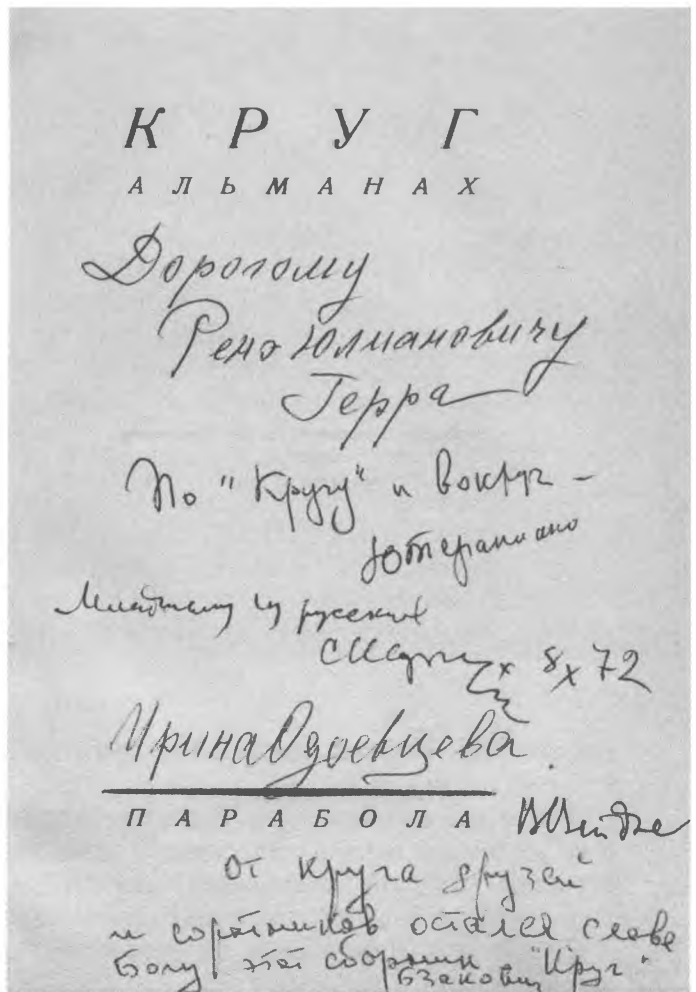 КРУГ
АЛЬМАНАХ
Дорогому
Ренэ Юлиановичу
Герра
По "Кругу" и вокруг –
Ю Терапиано
Младшему из русских
СШарш
8 X 72
Ирина Одоевцева.
ПАРАБОЛА
ВВейдле
От круга друзей
и соратников остался слава
Богу этот сборник "Круг"